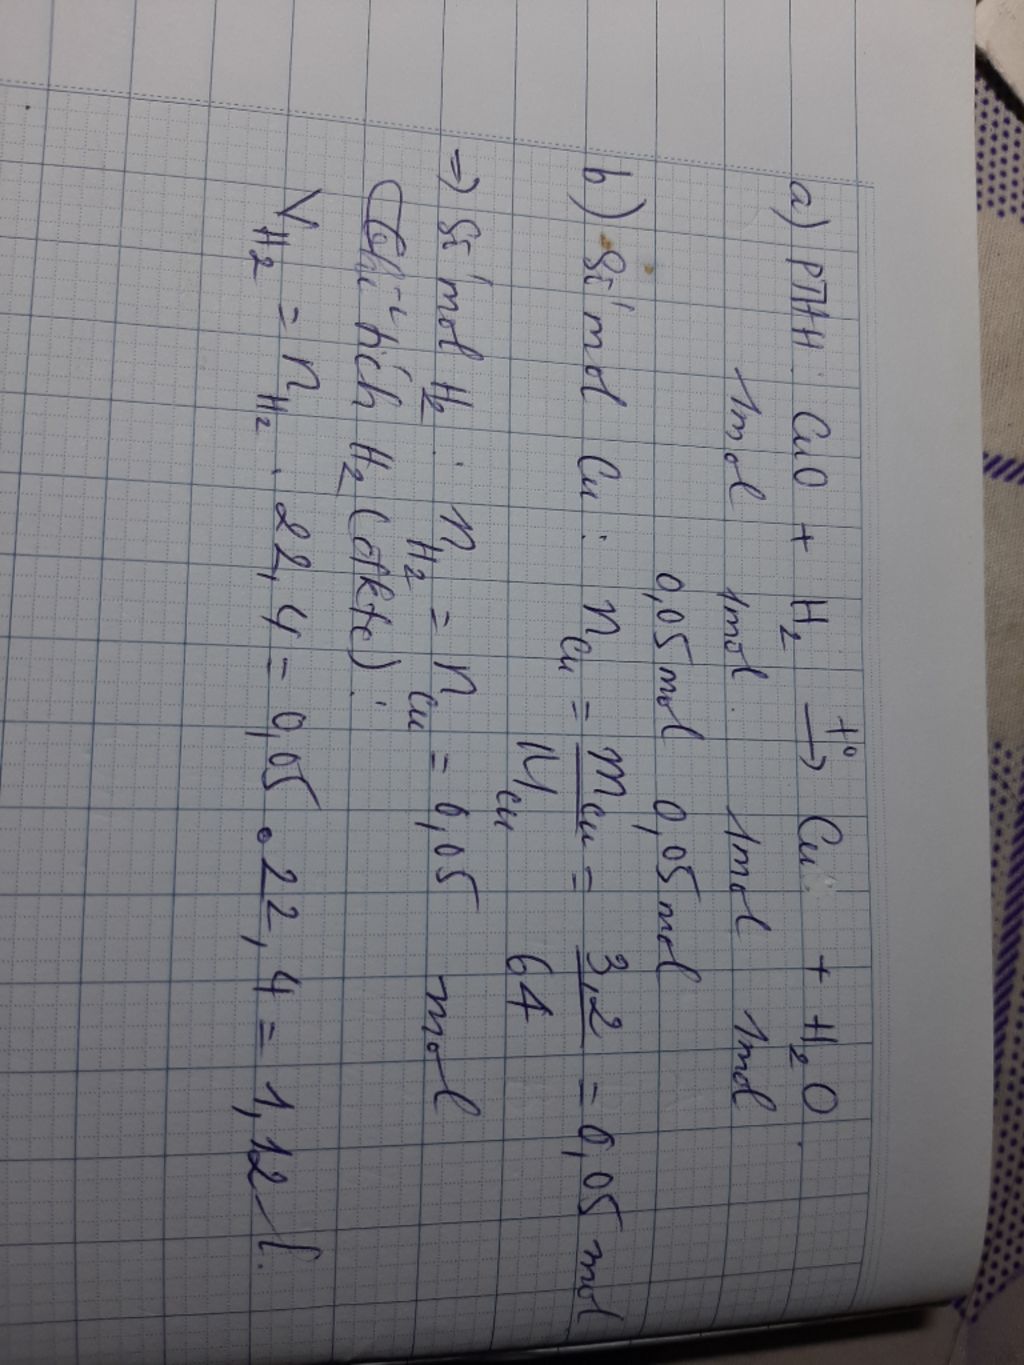 a) PTHH: CuO + H₂ →(t°) Cu + H₂O.
1mol 1mol. 1mol 1mol
0,05mol 0,05mol
b) Số mol Cu: n_Cu = m_Cu / M_Cu = 3,2 / 64 = 0,05 mol
=> Số mol H₂: n_H₂ = n_Cu = 0,05 mol
Thể tích H₂ (đktc):
V_H₂ = n_H₂ . 22,4 = 0,05 . 22,4 = 1,12 l.